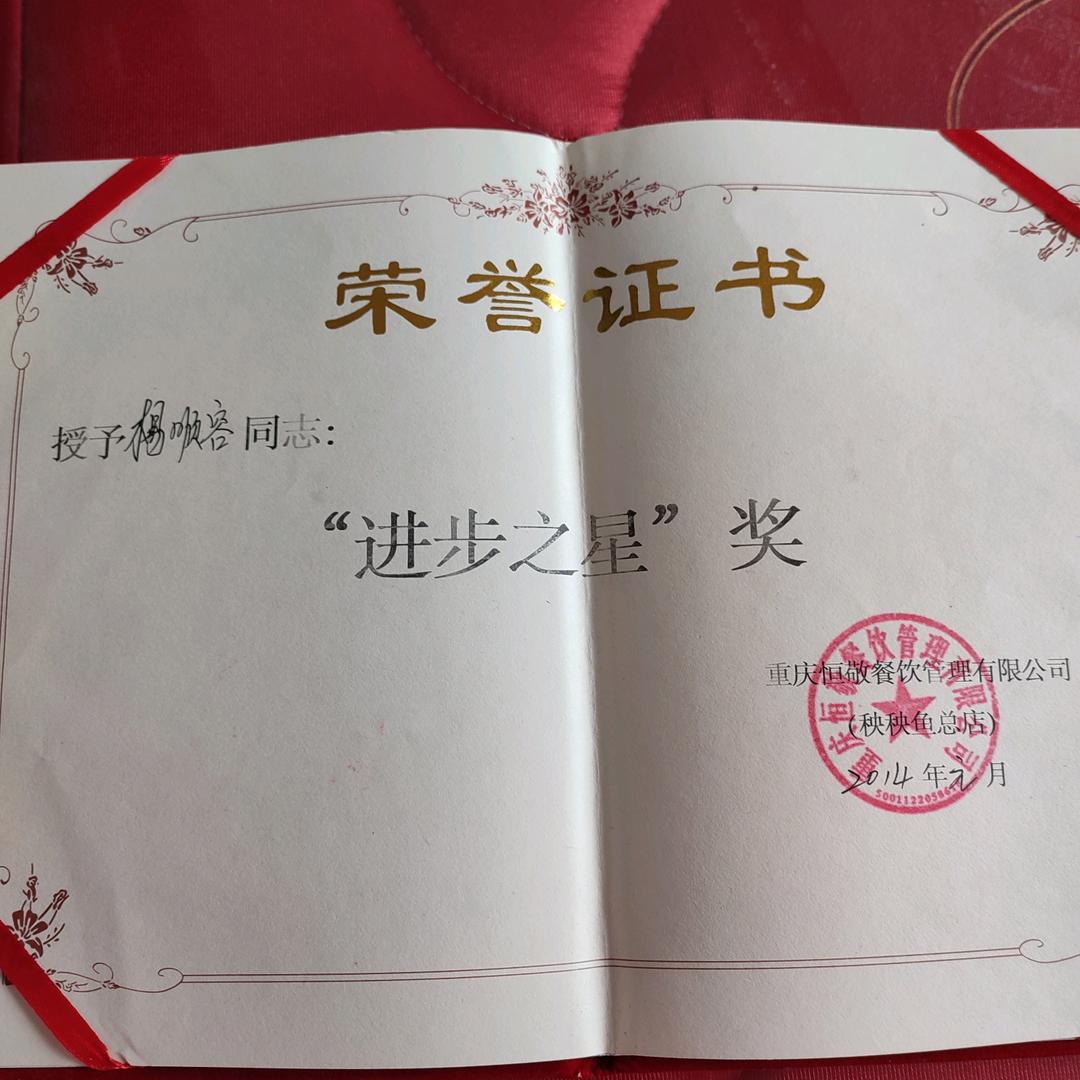 荣誉证书
授予杨顺容同志：
“进步之星”奖
重庆恒敬餐饮管理有限公司
（秧秧鱼总店）
2014年元月
重庆恒敬餐饮管理有限公司